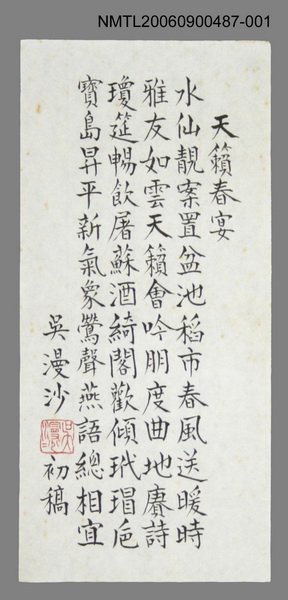 NMTL20060900487-001
天籟春宴
水仙靚案置盆池稻市春風送暖時
雅友如雲天籟會吟朋度曲地賡詩
瓊筵暢飲屠蘇酒綺閣歡傾玳瑁卮
寶島昇平新氣象鶯聲燕語總相宜
吳漫沙
初稿